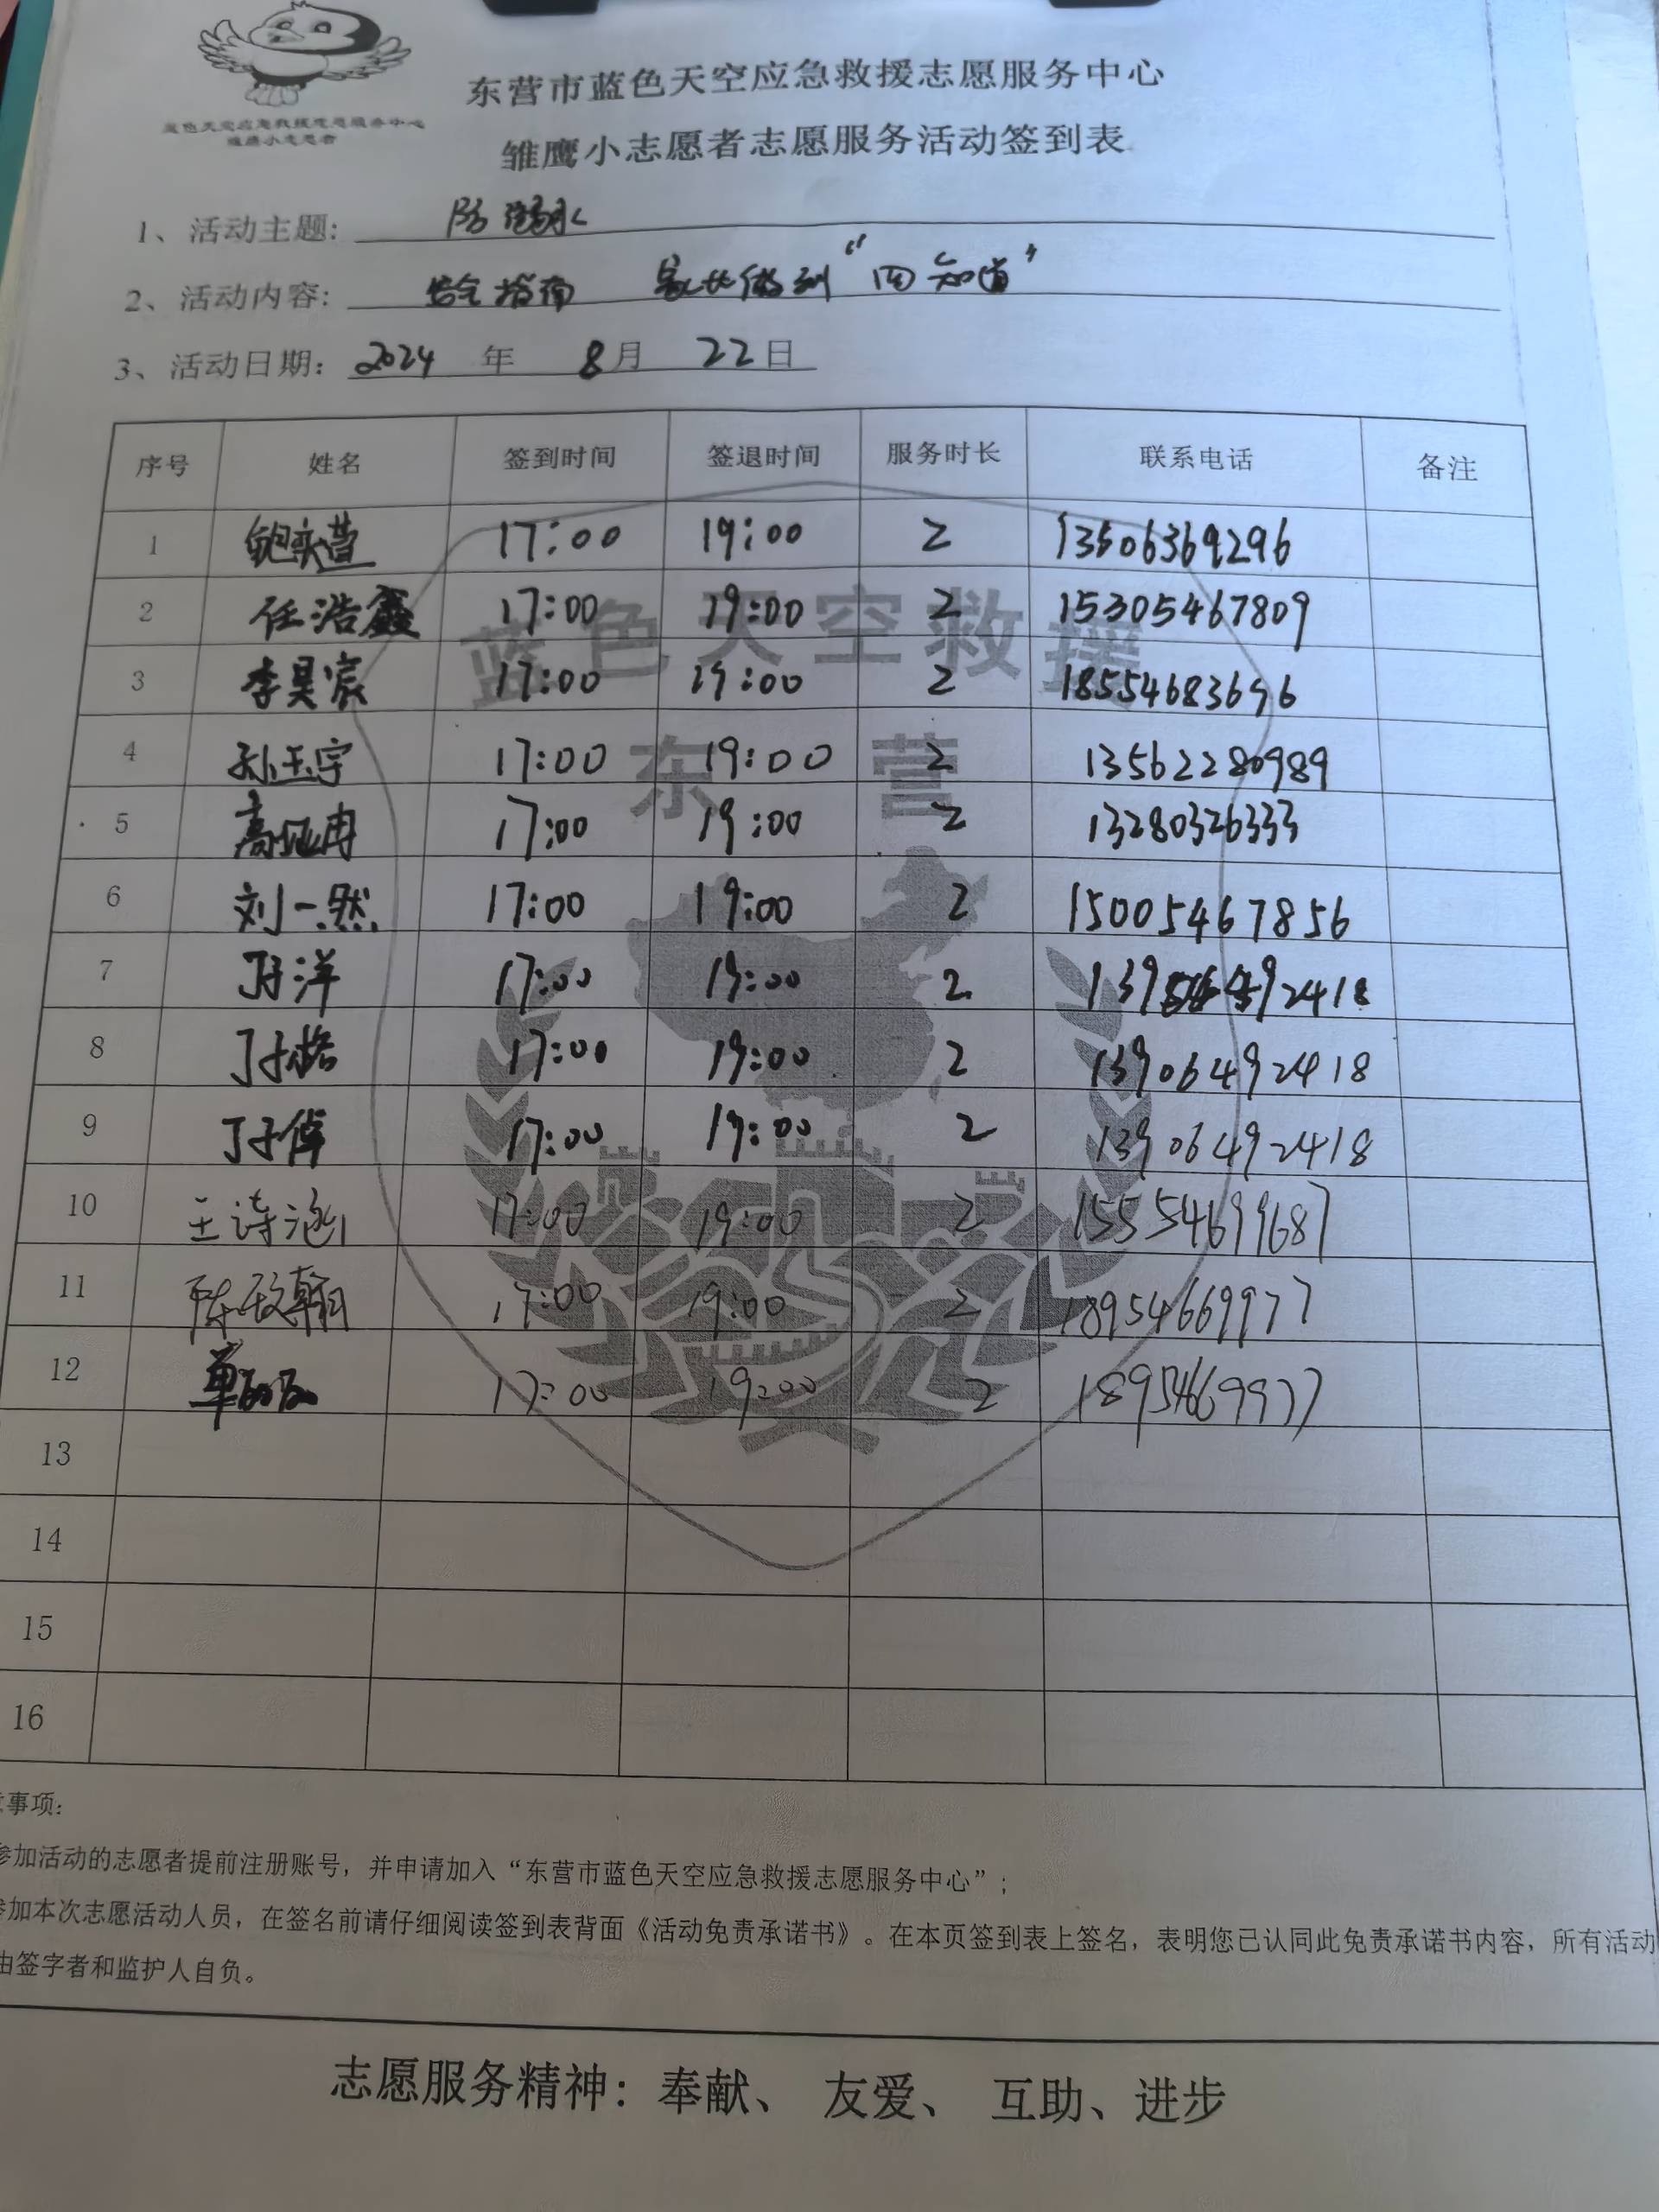 蓝色天空应急救援志愿服务中心
雏鹰小志愿者
东营市蓝色天空应急救援志愿服务中心
雏鹰小志愿者志愿服务活动签到表
1、活动主题: 防溺水
2、活动内容: 安全指南 家长做到“四知道”
3、活动日期: 2024 年 8月 22日
序号 姓名 签到时间 签退时间 服务时长 联系电话 备注
1 鲍奕萱 17:00 19:00 2 13606369296
2 任浩鑫 17:00 19:00 2 15305467809
3 李昊宸 17:00 19:00 2 18554683696
4 孙玉宇 17:00 19:00 2 13562280989
5 高 17:00 19:00 2 13280326333
6 刘一然 17:00 19:00 2 15005467856
7 洋 17:00 19:00 2
8 丁子 17:00 19:00 2 13906492418
9 丁子倬 17:00 19:00 2 13906492418
10 王诗涵 17:00 19:00 2 15554699687
11 陈 翰 17:00 19:00 2 18954669977
12 单 17:00 19:00 2 18954669977
13
14
15
16
蓝色天空救援
东营
事项:
参加活动的志愿者提前注册账号，并申请加入“东营市蓝色天空应急救援志愿服务中心”；
参加本次志愿活动人员，在签名前请仔细阅读签到表背面《活动免责承诺书》。在本页签到表上签名，表明您已认同此免责承诺书内容，所有活动
由签字者和监护人自负。
志愿服务精神：奉献、 友爱、 互助、进步